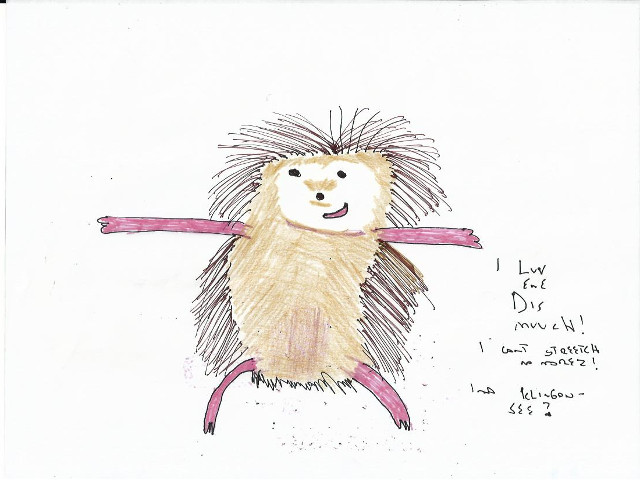 I Luv
EmE
DIS
muucH!
I CanT STREETCH
no moREZ!
Ima KLINGON-
SEE?